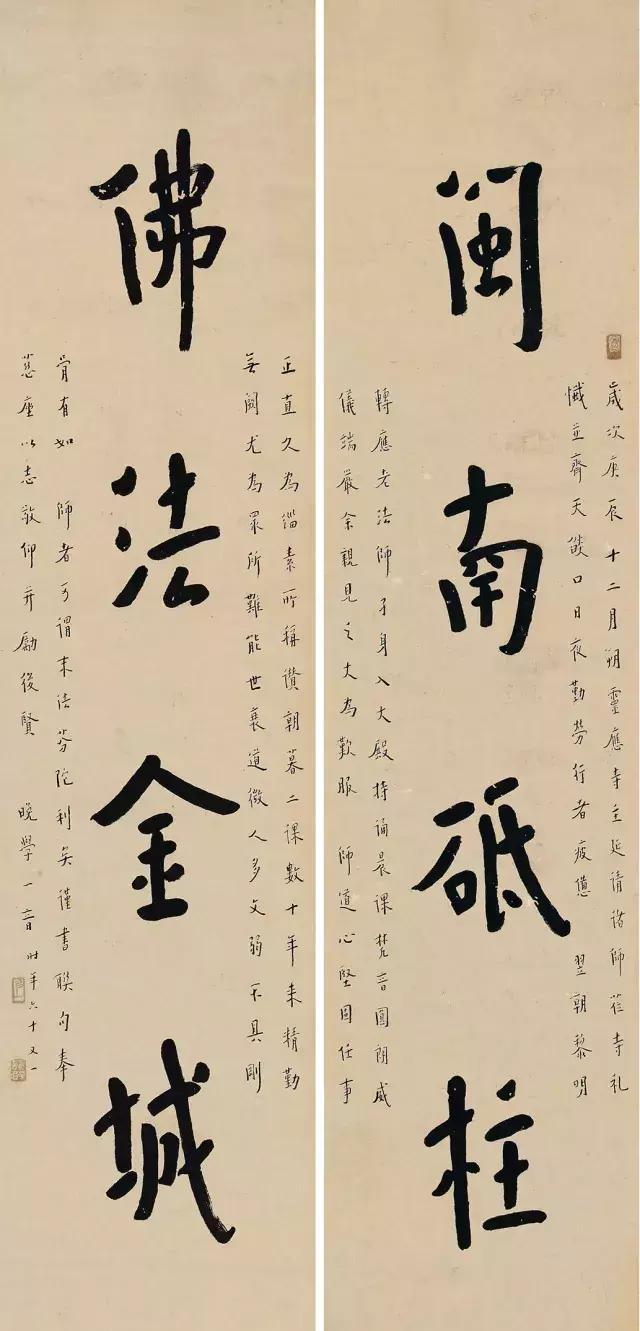 閩南砥柱
歲次庚辰十二月朔靈應寺主延請諸師莅寺礼
懺並齋天燄口日夜勤勞行者疲憊 翌朝黎明
轉應老法師孑身入大殿持誦晨課梵音圓朗威
儀端嚴余親見之大為歎服 師道心堅固任事
佛法金城
正直久為緇素所稱讚朝暮二課數十年来精勤
无闕尤為眾所難能世衰道微人多文弱不具剛
骨有如 師者可謂末法芬陀利矣謹書聯句奉
慈座以志敬仰并勵後賢 晚學一音時年六十又一